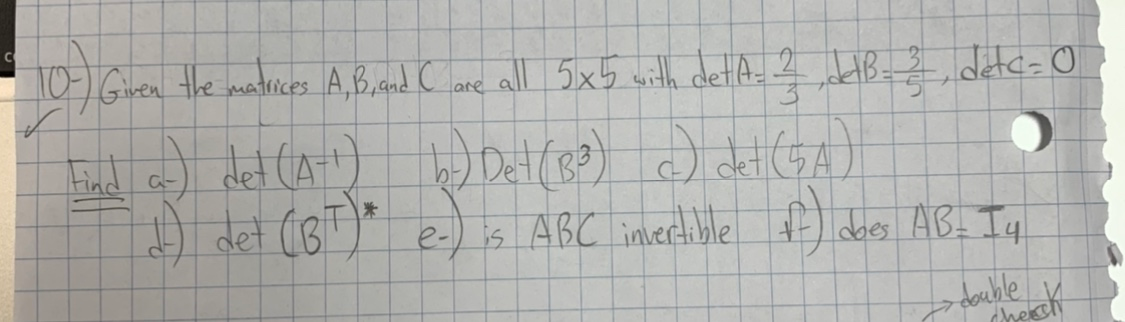 10-) Given the matrices A, B, and C are all 5x5 with detA = 2/3, detB = 3/5, detC = 0
Find a-) det(A-1) b-) Det(B3) c-) det(5A)
d-) det (BT)* e-) is ABC invertible f-) does AB = I4
→ double
check